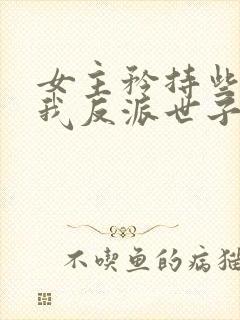 女主矜持些
我反派世子
不喫鱼的病猫